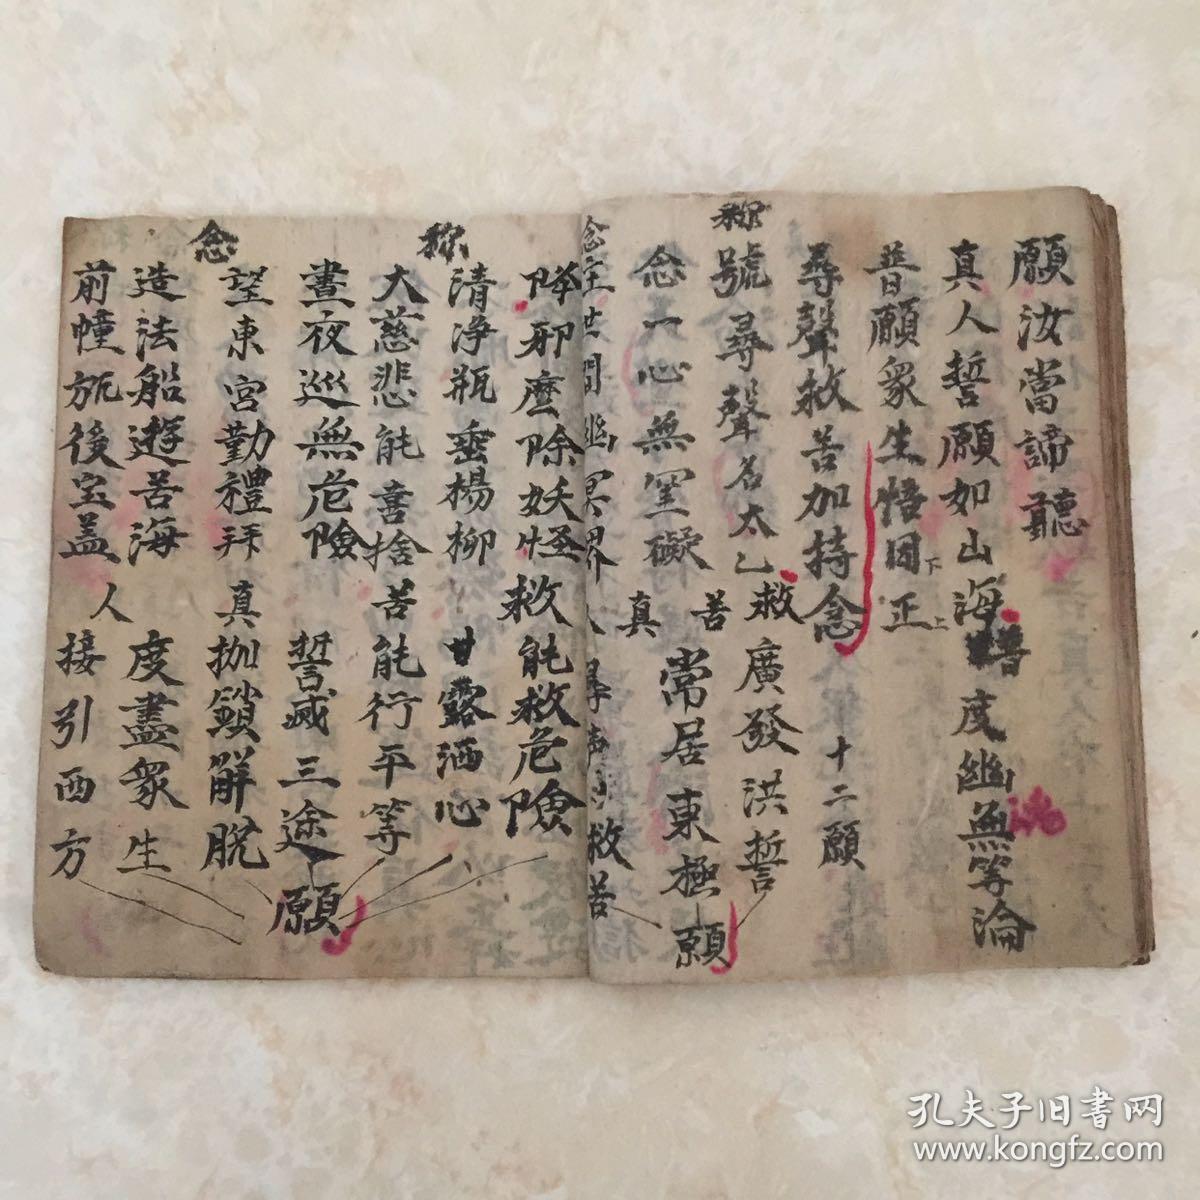 願汝當諦聽
真人誓願如山海 普度幽無等淪
普願衆生悟因正
下 上
尋聲救苦加持念 十二願
称
號尋聲名太乙救 廣發洪誓
苦
念一心無罣礙 真 常居東極 願
念在世間幽冥界 人尋聲 救苦
降邪麼除妖怪 救能救危險
清浄瓶垂楊柳 甘露洒心
称
大慈悲能喜捨 苦能行平等
晝夜巡無危險 誓滅三途
願
望東宮勤禮拜 真 枷鎖解脫
念
造法船遊苦海 度盡衆生
人
前幢旐後宝盖 接引西方
孔夫子旧書网
www.kongfz.com